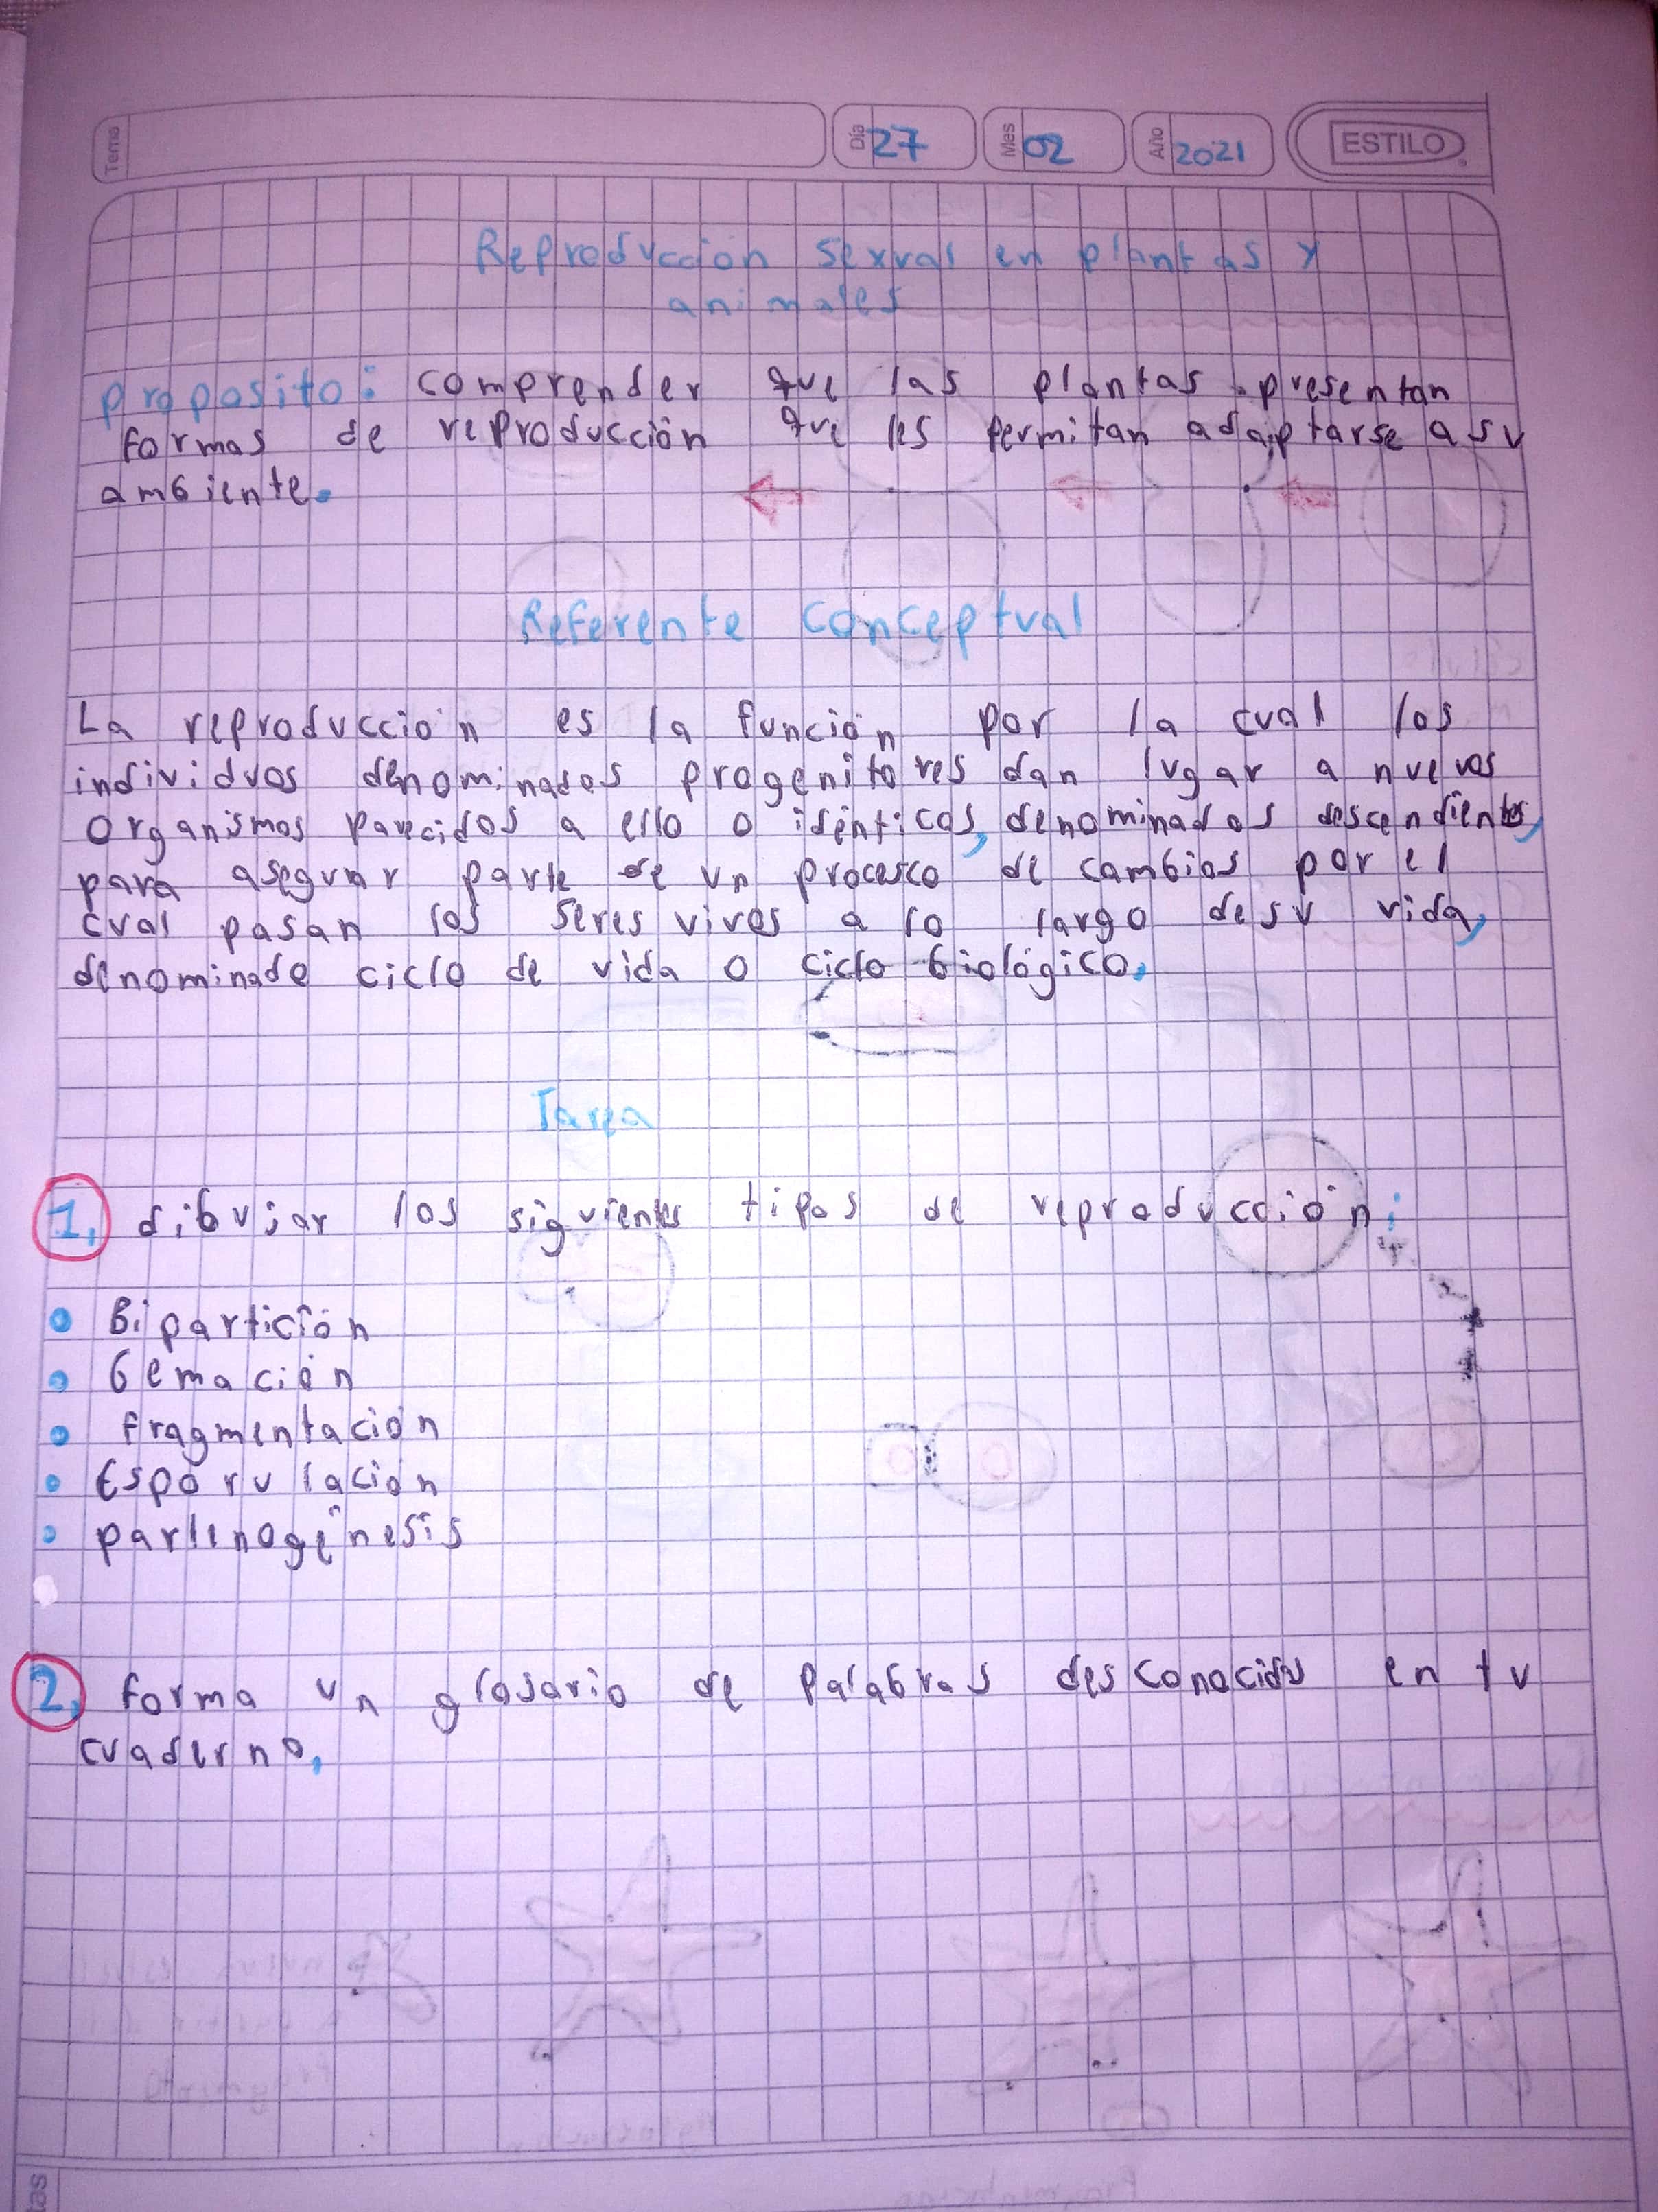 Tema
Día 27 Mes 02 Año 2021 ESTILO
Reproducción sexual en plantas y
animales
proposito: comprender que las plantas presentan
formas de reproducción que les permitan adaptarse a su
ambiente.
Referente Conceptual
La reproducción es la función por la cual los
individuos denominados progenitores dan lugar a nuevos
organismos parecidos a ello o idénticos, denominados descendientes,
para asegurar parte de un proceso de cambios por el
cual pasan los seres vivos a lo largo de su vida,
denominado ciclo de vida o ciclo biológico.
Tarea
1. dibujar los siguientes tipos de reproducción:
Bipartición
Gemación
fragmentación
Esporulación
partenogénesis
2. forma un glosario de palabras desconocidas en tu
cuaderno.
tas